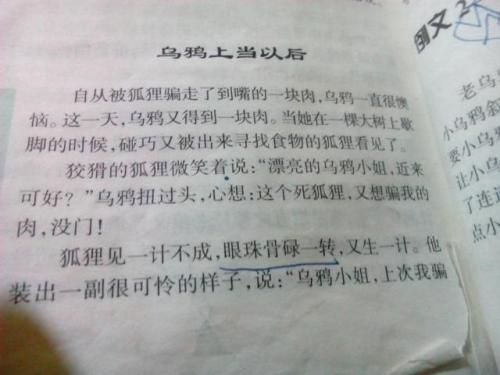 乌鸦上当以后
自从被狐狸骗走了到嘴的一块肉，乌鸦一直很懊
恼。这一天，乌鸦又得到一块肉。当她在一棵大树上歇
脚的时候，碰巧又被出来寻找食物的狐狸看见了。
狡猾的狐狸微笑着说：“漂亮的乌鸦小姐，近来
可好？”乌鸦扭过头，心想：这个死狐狸，又想骗我的
肉，没门！
狐狸见一计不成，眼珠骨碌一转，又生一计。他
装出一副很可怜的样子，说：“乌鸦小姐，上次我骗
例文2
老乌
小乌鸦斜
要小乌
让小乌
了连
点小